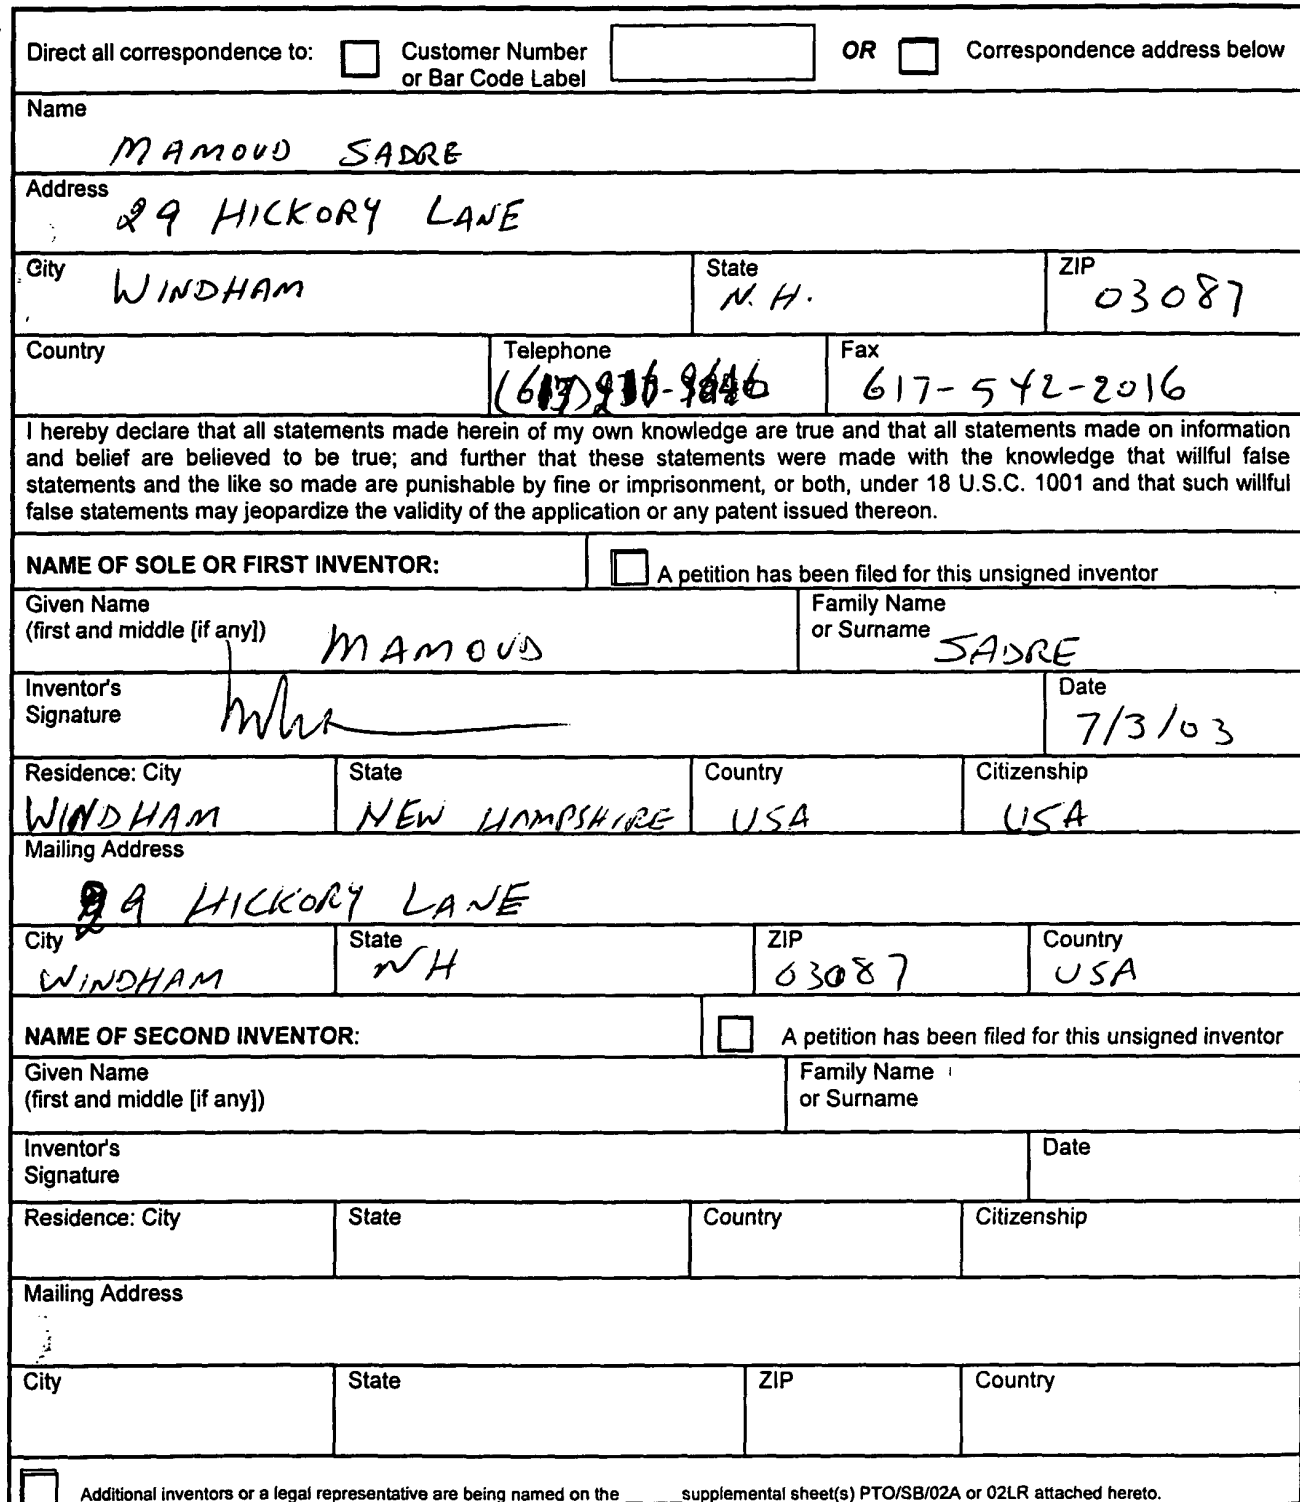 Direct all correspondence to: Customer Number or Bar Code Label OR Correspondence address below
Name
MAMOUD SADRE
Address
29 HICKORY LANE
City State ZIP
WINDHAM N.H. 03087
Country Telephone Fax
617-542-2016
I hereby declare that all statements made herein of my own knowledge are true and that all statements made on information
and belief are believed to be true; and further that these statements were made with the knowledge that willful false
statements and the like so made are punishable by fine or imprisonment, or both, under 18 U.S.C. 1001 and that such willful
false statements may jeopardize the validity of the application or any patent issued thereon.
NAME OF SOLE OR FIRST INVENTOR: A petition has been filed for this unsigned inventor
Given Name
(first and middle [if any]) MAMOUD
Family Name
or Surname SADRE
Inventor's
Signature
Date
7/3/03
Residence: City State Country Citizenship
WINDHAM NEW HAMPSHIRE USA USA
Mailing Address
29 HICKORY LANE
City State ZIP Country
WINDHAM NH 03087 USA
NAME OF SECOND INVENTOR: A petition has been filed for this unsigned inventor
Given Name
(first and middle [if any])
Family Name
or Surname
Inventor's
Signature
Date
Residence: City State Country Citizenship
Mailing Address
City State ZIP Country
Additional inventors or a legal representative are being named on the ______supplemental sheet(s) PTO/SB/02A or 02LR attached hereto.